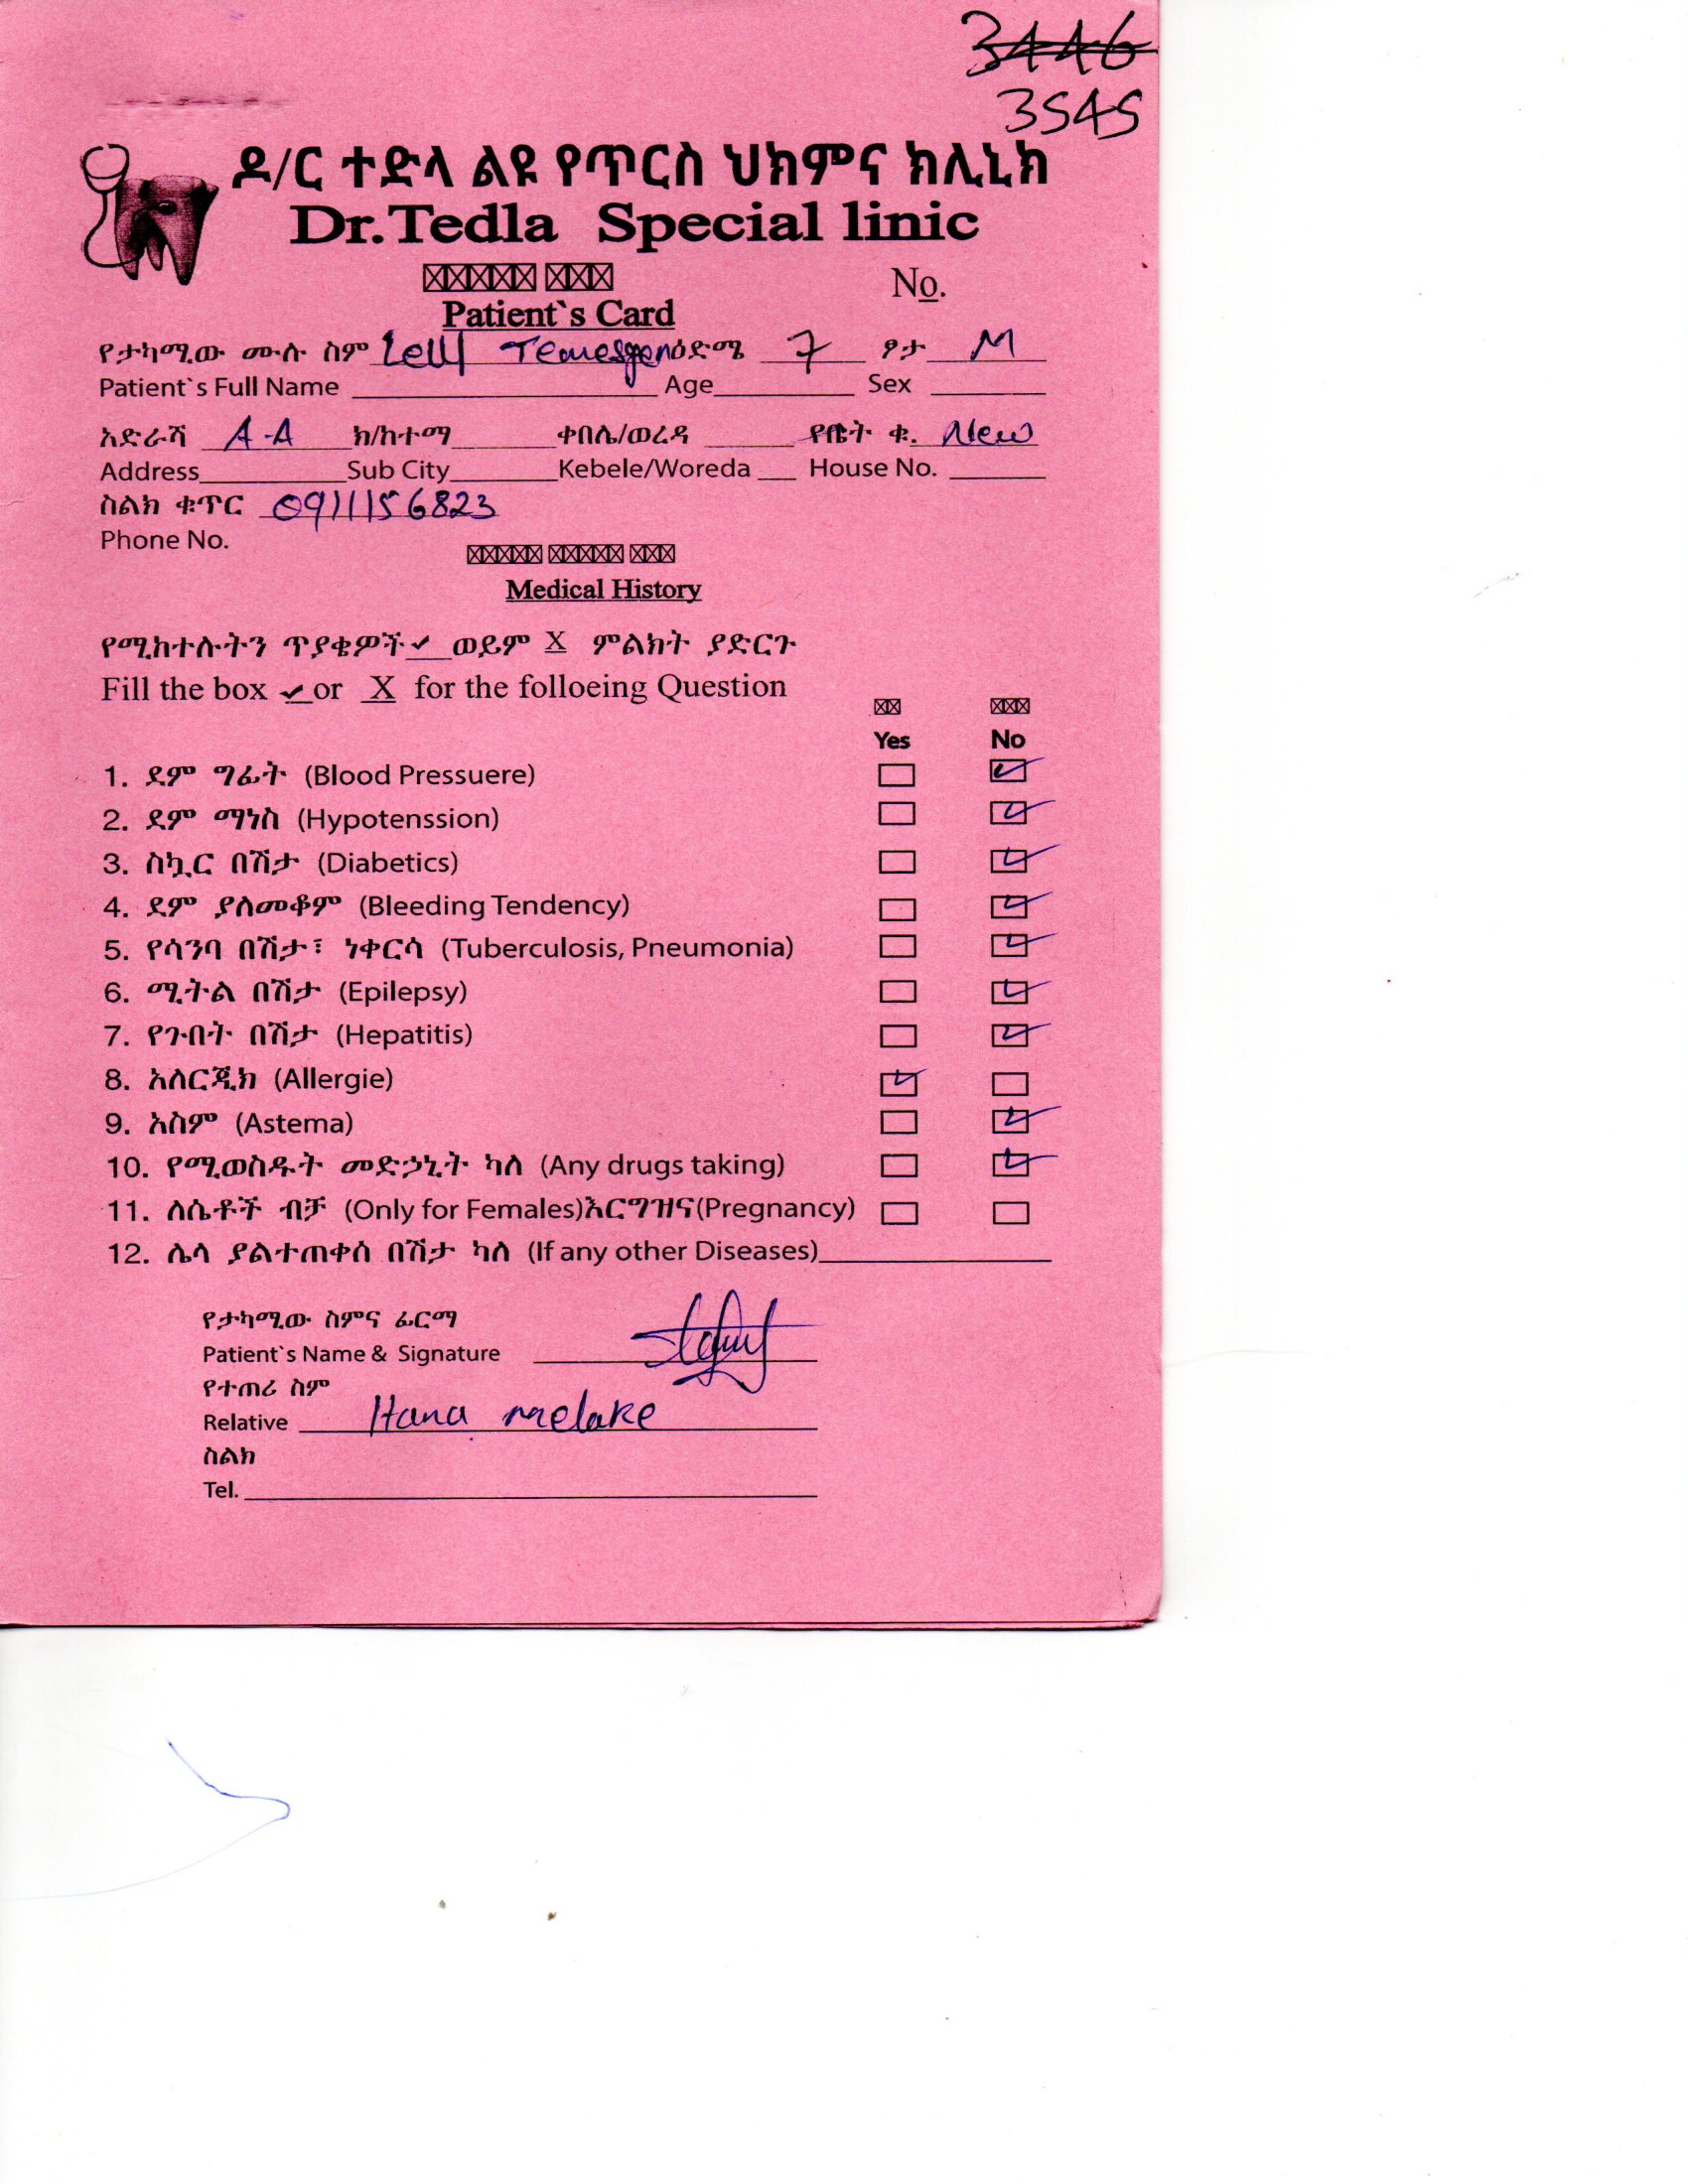 3446
3545
ዶ/ር ተድላ ልዩ የጥርስ ህክምና ክሊኒክ
Dr.Tedla Special linic
No.
Patient`s Card
የታካሚው ሙሉ ስም Temesgen ዕድሜ 7 ፆታ M
Patient`s Full Name Age Sex
አድራሻ A-A ክ/ከተማ ቀበሌ/ወረዳ የቤት ቁ. New
Address Sub City Kebele/Woreda House No.
ስልክ ቁጥር 0911156823
Phone No.
Medical History
የሚከተሉትን ጥያቄዎች ✓ ወይም X ምልክት ያድርጉ
Fill the box ✓ or X for the folloeing Question
Yes No
1. ደም ግፊት (Blood Pressuere)
2. ደም ማነስ (Hypotenssion)
3. ስኳር በሽታ (Diabetics)
4. ደም ያለመቆም (Bleeding Tendency)
5. የሳንባ በሽታ፣ ነቀርሳ (Tuberculosis, Pneumonia)
6. ሚትል በሽታ (Epilepsy)
7. የጉበት በሽታ (Hepatitis)
8. አለርጂክ (Allergie)
9. አስም (Astema)
10. የሚወስዱት መድኃኒት ካለ (Any drugs taking)
11. ለሴቶች ብቻ (Only for Females)እርግዝና(Pregnancy)
12. ሌላ ያልተጠቀሰ በሽታ ካለ (If any other Diseases)
የታካሚው ስምና ፊርማ
Patient`s Name & Signature
የተጠሪ ስም
Relative Hana melake
ስልክ
Tel.